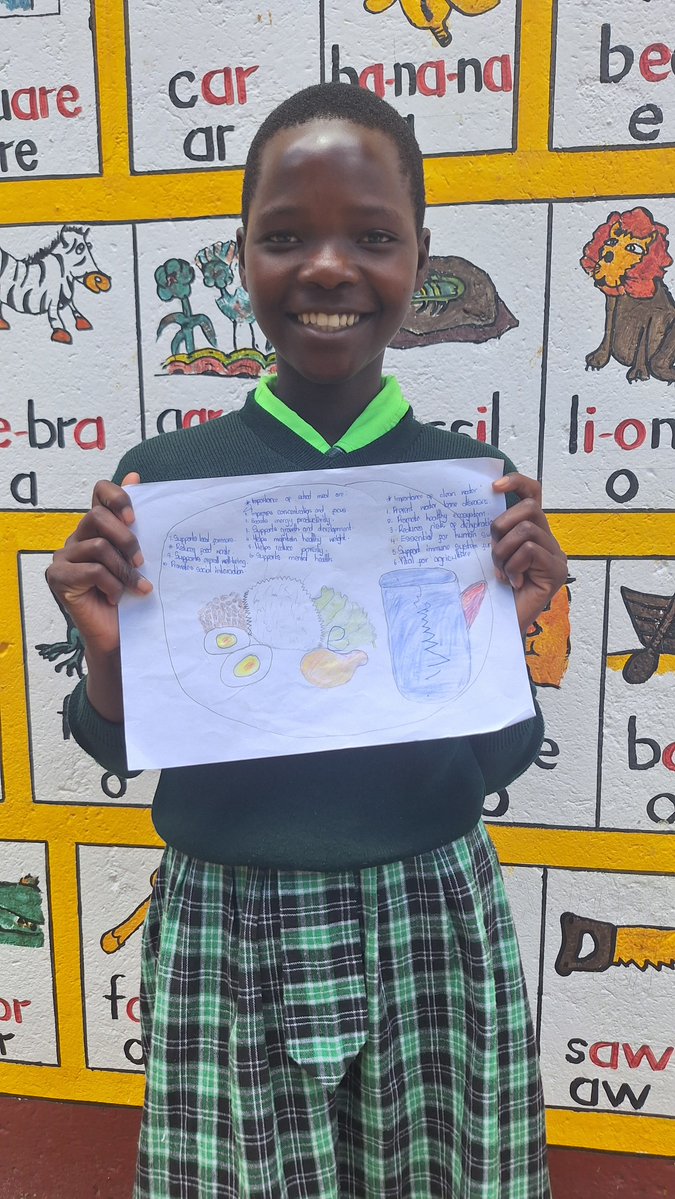 uare
are
car
ar
ba-na-na
a
be
e
e-bra
a
ar
sil
li-on
o
* Importance of school meal are
1. Improves concentration and focus
2. Boosts energy productivity
3. Supports growth and development
4. Helps maintain healthy weight
5. Helps reduce poverty
6. Supports mental health
7. Supports local farmers
* Reducing food waste
9. Supports overall well-being
10. Promotes social interaction
* Importance of clean water
1. Prevent water borne diseases
2. Promote healthy
3. Reduces risk of
4. Essential for human
5. Support immune system
6. Vital for agriculture
o
e
bo
o
or
r
fo
o
saw
aw